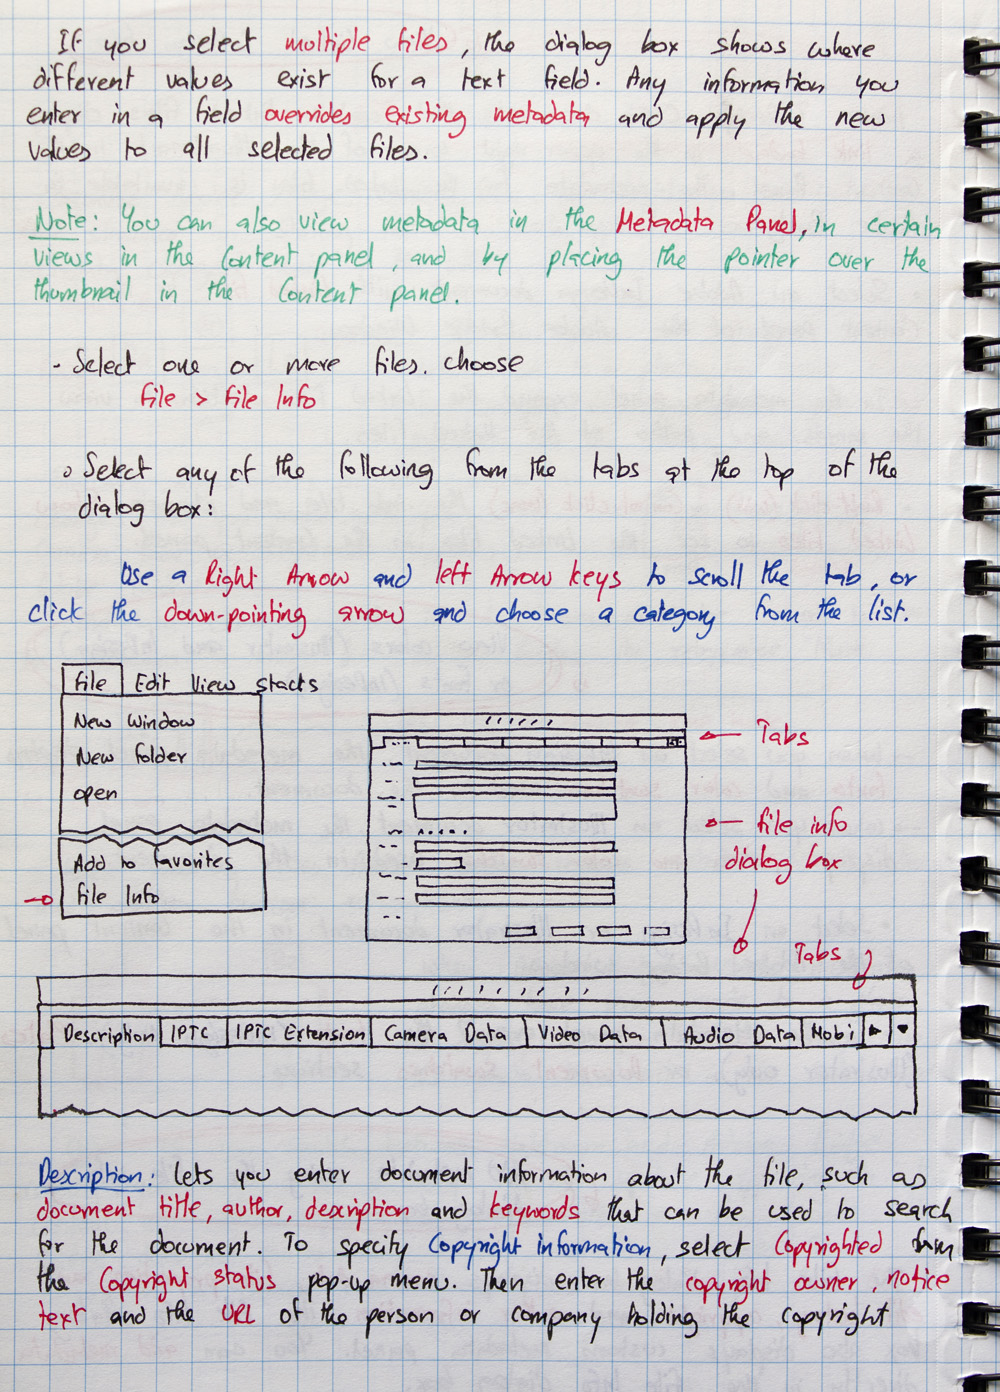 If you select multiple files, the dialog box shows where
different values exist for a text field. Any information you
enter in a field overrides existing metadata and apply the new
values to all selected files.
Note: You can also view metadata in the Metadata Panel, in certain
views in the Content panel, and by placing the pointer over the
thumbnail in the Content panel.
- Select one or more files. choose
File > File Info
o Select any of the following from the tabs at the top of the
dialog box:
Use a Right Arrow and left Arrow keys to scroll the tab, or
click the down-pointing arrow and choose a category from the list.
File Edit View Stacks
New Window
New Folder
open
Add to favorites
File Info
Tabs
file info
dialog box
Tabs
Description IPTC IPTC Extension Camera Data Video Data Audio Data Mobi
Description: Lets you enter document information about the file, such as
document title, author, description and keywords that can be used to search
for the document. To specify Copyright information, select Copyrighted from
the Copyright status pop-up menu. Then enter the copyright owner, notice
text and the URL of the person or company holding the copyright